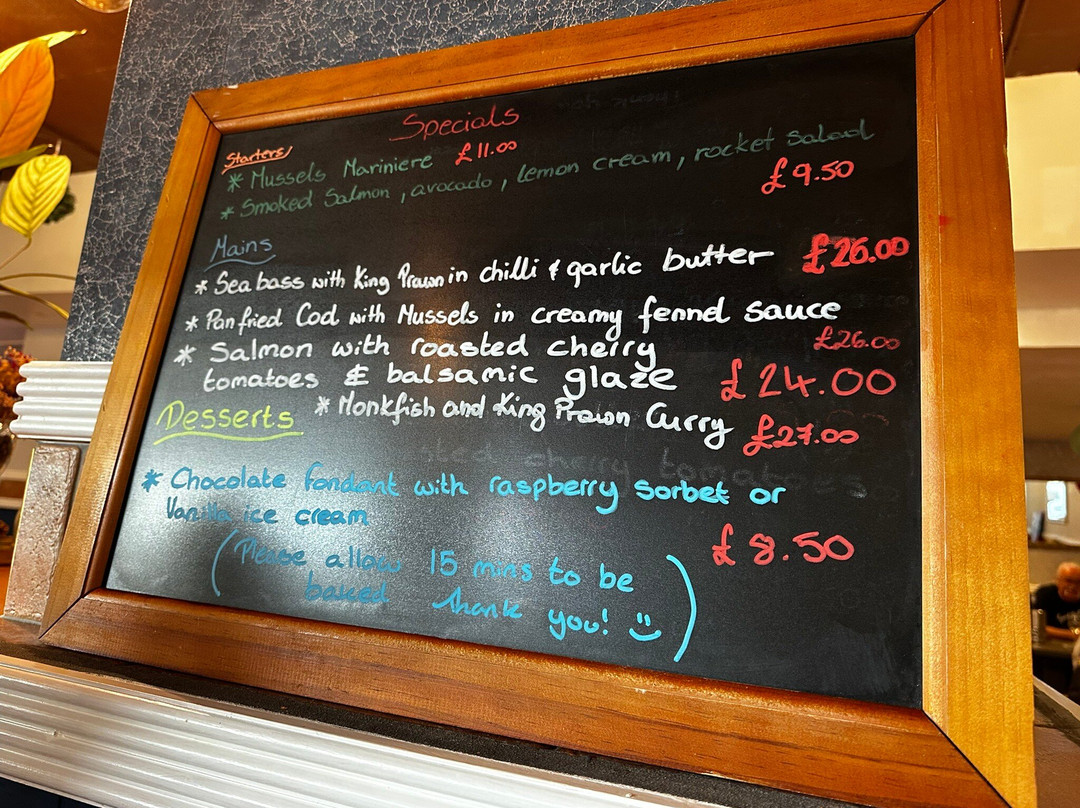 Specials
Starters
* Mussels Mariniere £11.00
* Smoked Salmon, avocado, lemon cream, rocket salad
£9.50
Mains
* Sea bass with King Prawn in chilli & garlic butter £26.00
* Pan fried Cod with Mussels in creamy fennel sauce
£26.00
* Salmon with roasted cherry
tomatoes & balsamic glaze £24.00
* Monkfish and King Prawn Curry £27.00
Desserts
* Chocolate fondant with raspberry sorbet or
Vanilla ice cream
£8.50
(Please allow 15 mins to be
baked thank you! :))